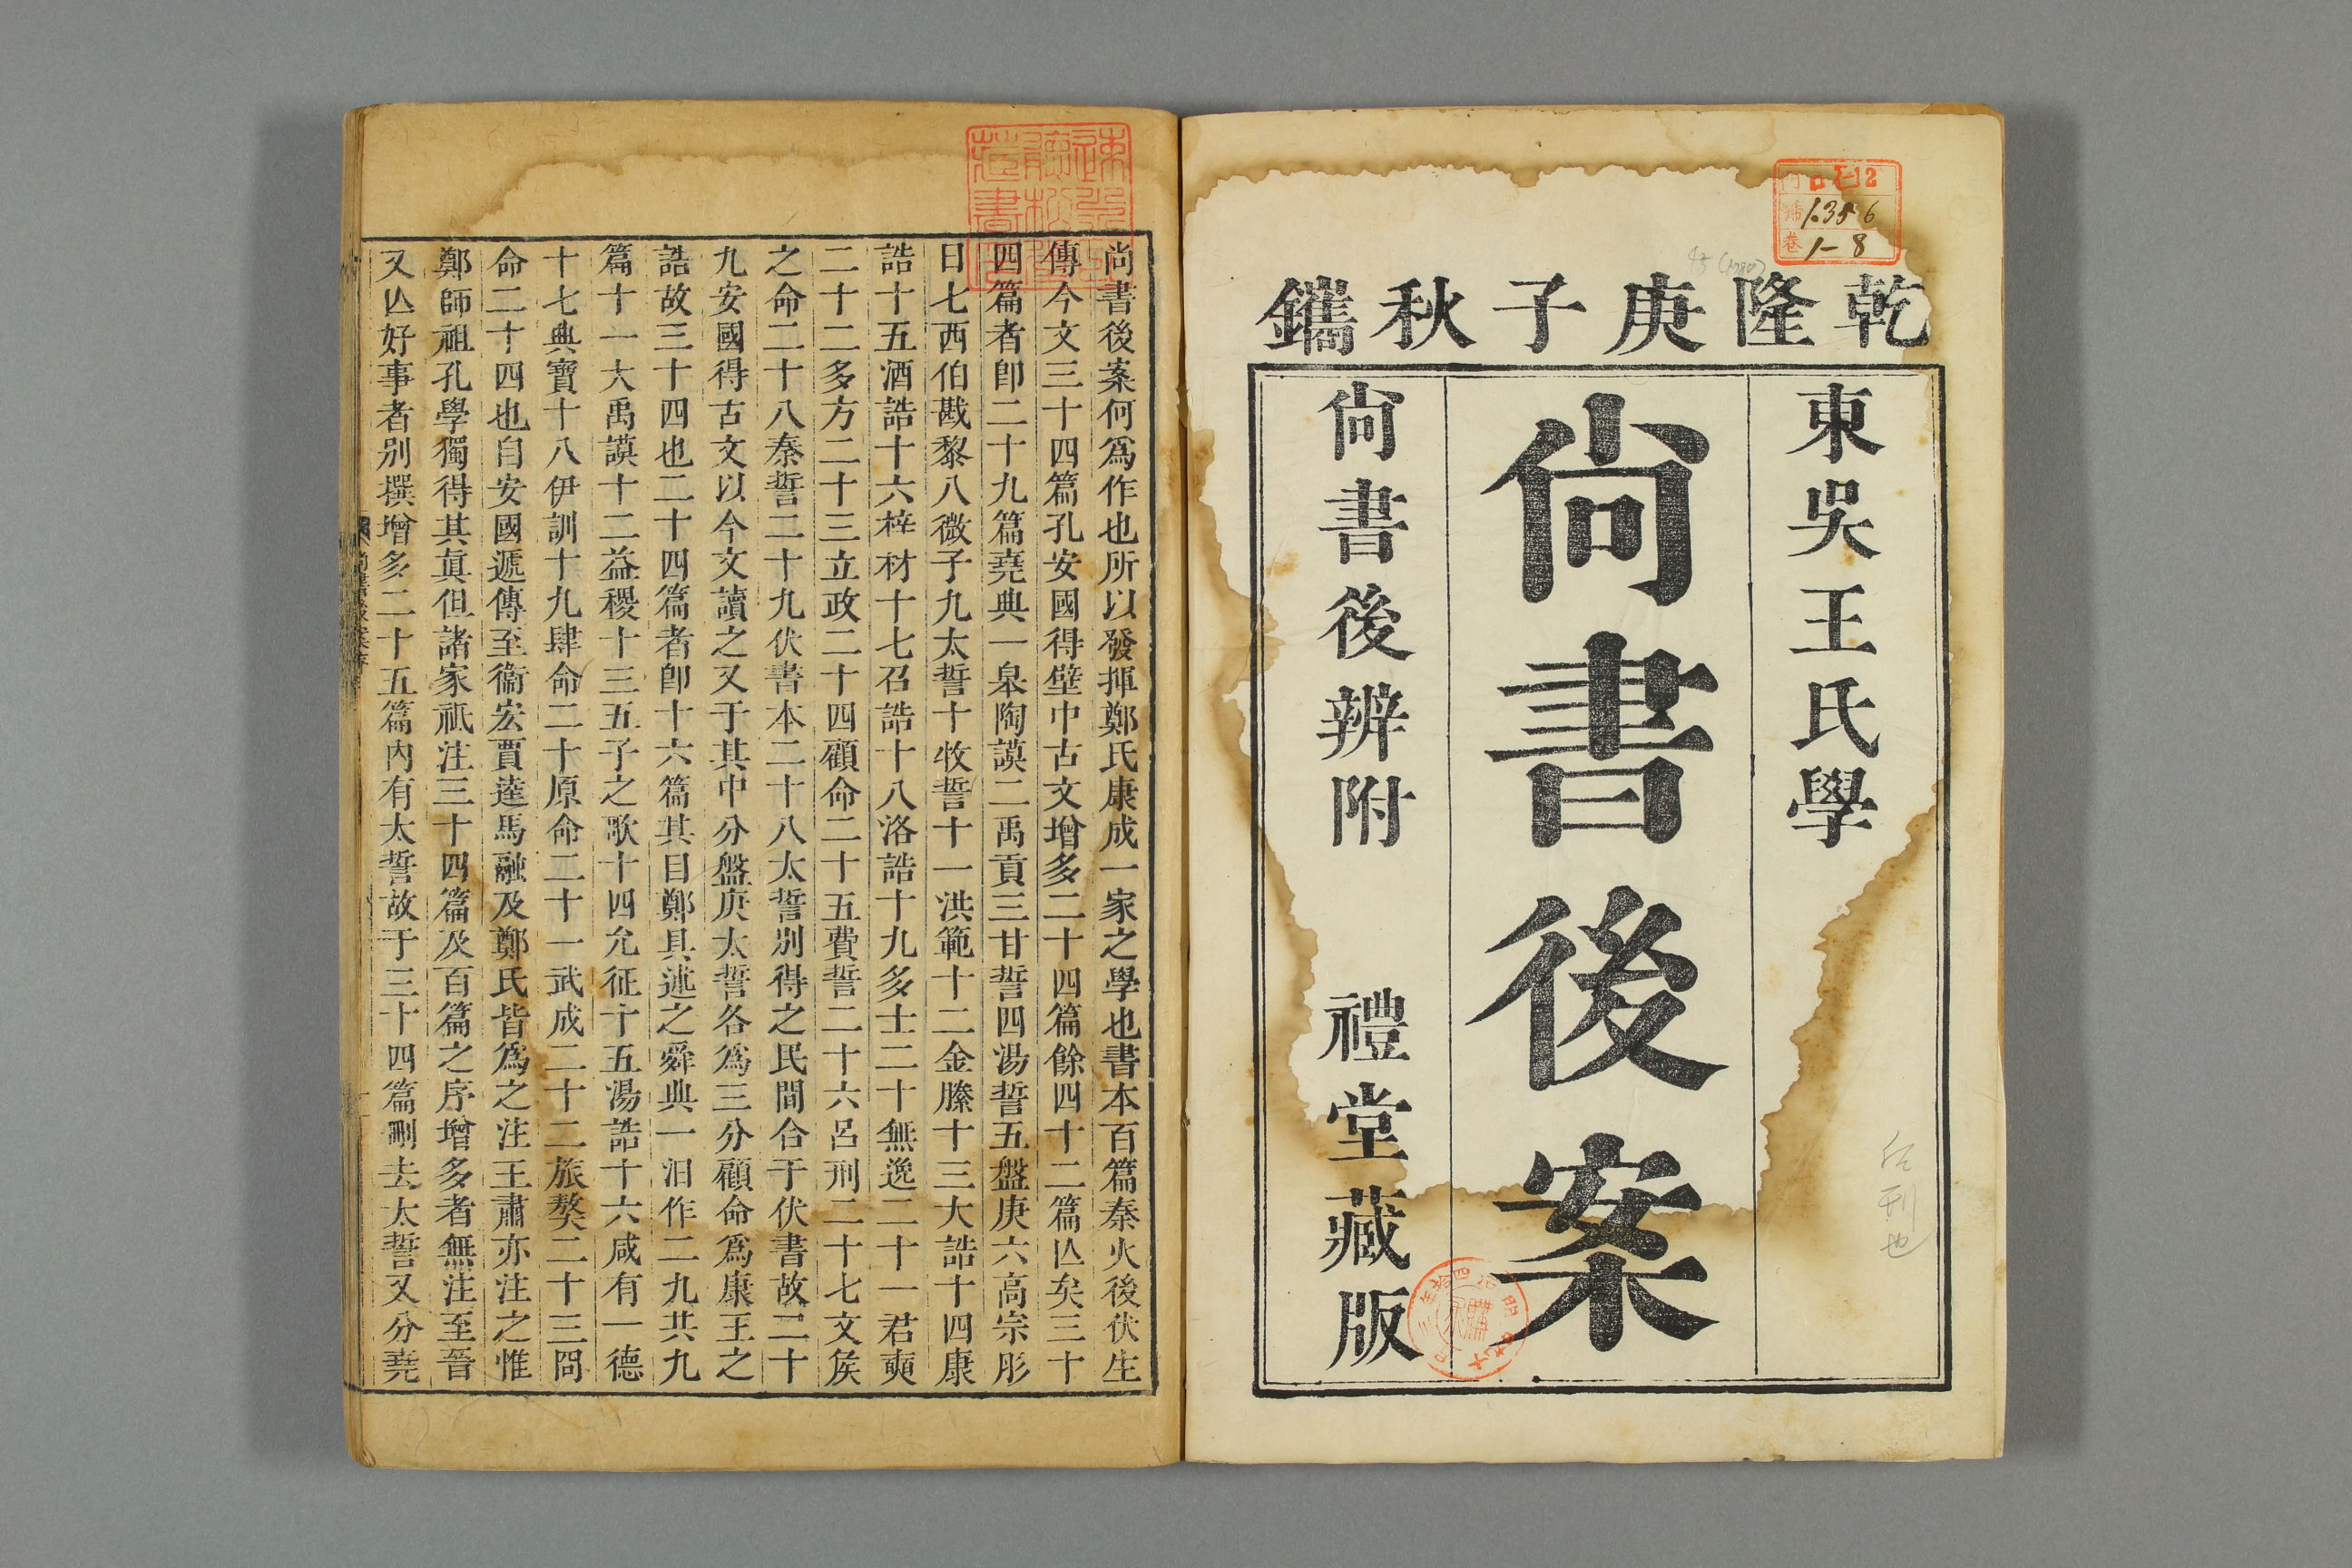 乾隆庚子秋鐫
東吳王氏學
尙書後案
尙書後辨附 禮堂藏版
ロ12
1356
1-8
(1780)
尙書後案何爲作也所以發揮鄭氏康成一家之學也書本百篇秦火後伏生
傳今文三十四篇孔安國得壁中古文增多二十四篇餘四十二篇亾矣三十
四篇者卽二十九篇堯典一皋陶謨二禹貢三甘誓四湯誓五盤庚六高宗肜
日七西伯戡黎八微子九太誓十牧誓十一洪範十二金縢十三大誥十四康
誥十五酒誥十六梓材十七召誥十八洛誥十九多士二十無逸二十一君奭
二十二多方二十三立政二十四顧命二十五費誓二十六呂刑二十七文矦
之命二十八秦誓二十九伏書本二十八太誓別得之民間合于伏書故二十
九安國得古文以今文讀之又于其中分盤庚太誓各爲三分顧命爲康王之
誥故三十四也二十四篇者卽十六篇其目鄭具述之舜典一汨作二九共九
篇十一大禹謨十二益稷十三五子之歌十四允征十五湯誥十六咸有一德
十七典寶十八伊訓十九肆命二十原命二十一武成二十二旅獒二十三冏
命二十四也自安國遞傳至衞宏賈逵馬融及鄭氏皆爲之注王肅亦注之惟
鄭師祖孔學獨得其眞但諸家祇注三十四篇及百篇之序增多者無注至晉
又亾好事者別撰增多二十五篇內有太誓故于三十四篇刪去太誓又分堯
尙書後案序